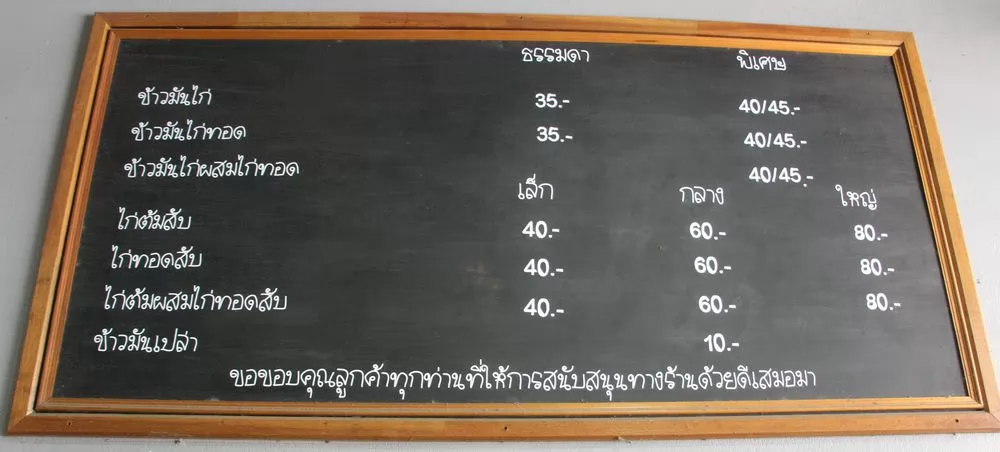 ธรรมดา พิเศษ
ข้าวมันไก่ 35.- 40/45.-
ข้าวมันไก่ทอด 35.- 40/45.-
ข้าวมันไก่ผสมไก่ทอด 40/45.-
เล็ก กลาง ใหญ่
ไก่ต้มสับ 40.- 60.- 80.-
ไก่ทอดสับ 40.- 60.- 80.-
ไก่ต้มผสมไก่ทอดสับ 40.- 60.- 80.-
ข้าวมันเปล่า 10.-
ขอขอบคุณลูกค้าทุกท่านที่ให้การสนับสนุนทางร้านด้วยดีเสมอมา